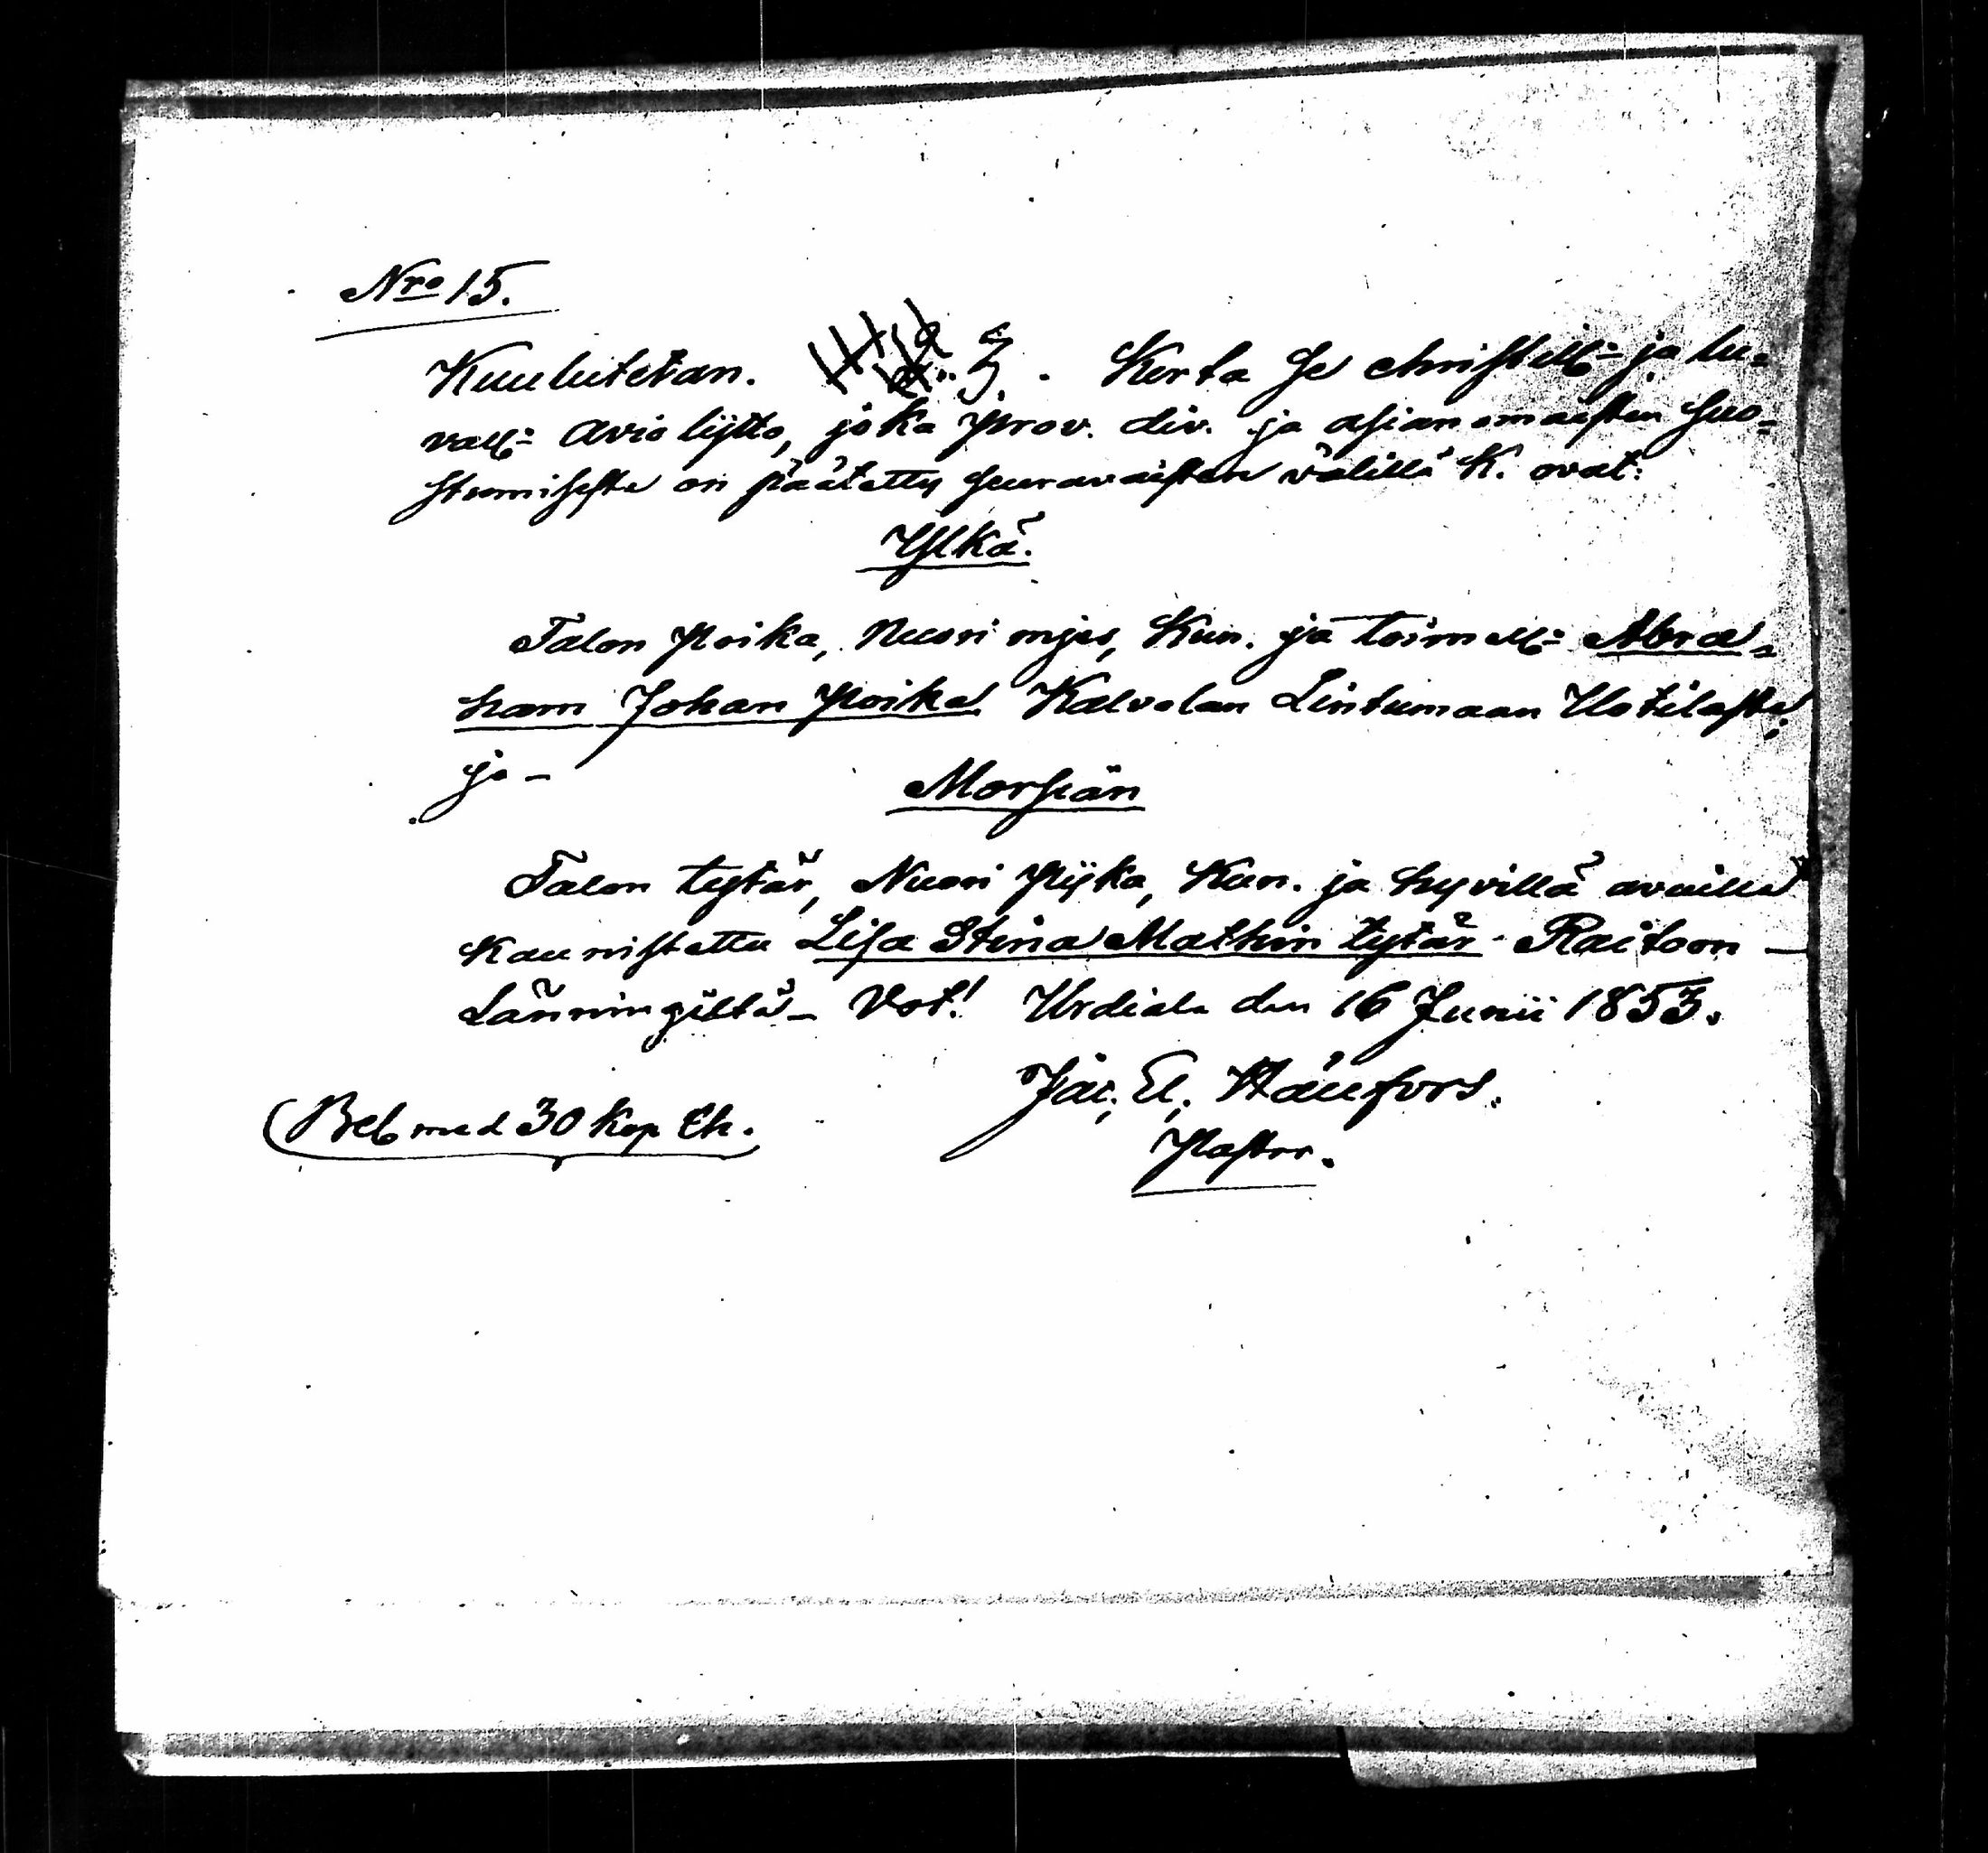 Nro 15.
Kuulutetan. 3. Kerta Se christill: ja lu-
vall: Avio lijtto, joka prov. div. ja asianomaisten suo-
stumisesta on päätetty seuravaisten välillä K. ovat:
Ylkä.
Talon Poika, Nuori mjes, Kun. ja toimell: Abra-
ham Johan Poika Kalvolan Lintumaan Uotilasta;
ja -
Morsian
Talon tytär, Nuori Pijka, Kun. ja hyvillä avuilla
Kaunistettu Lisa Stina Mathin tytär Raitoon -
Länningiltä - Vot! Urdiala den 16 Junii 1853.
Jac. El.
Pastor.
(Bel. med 30 Kop Ch.